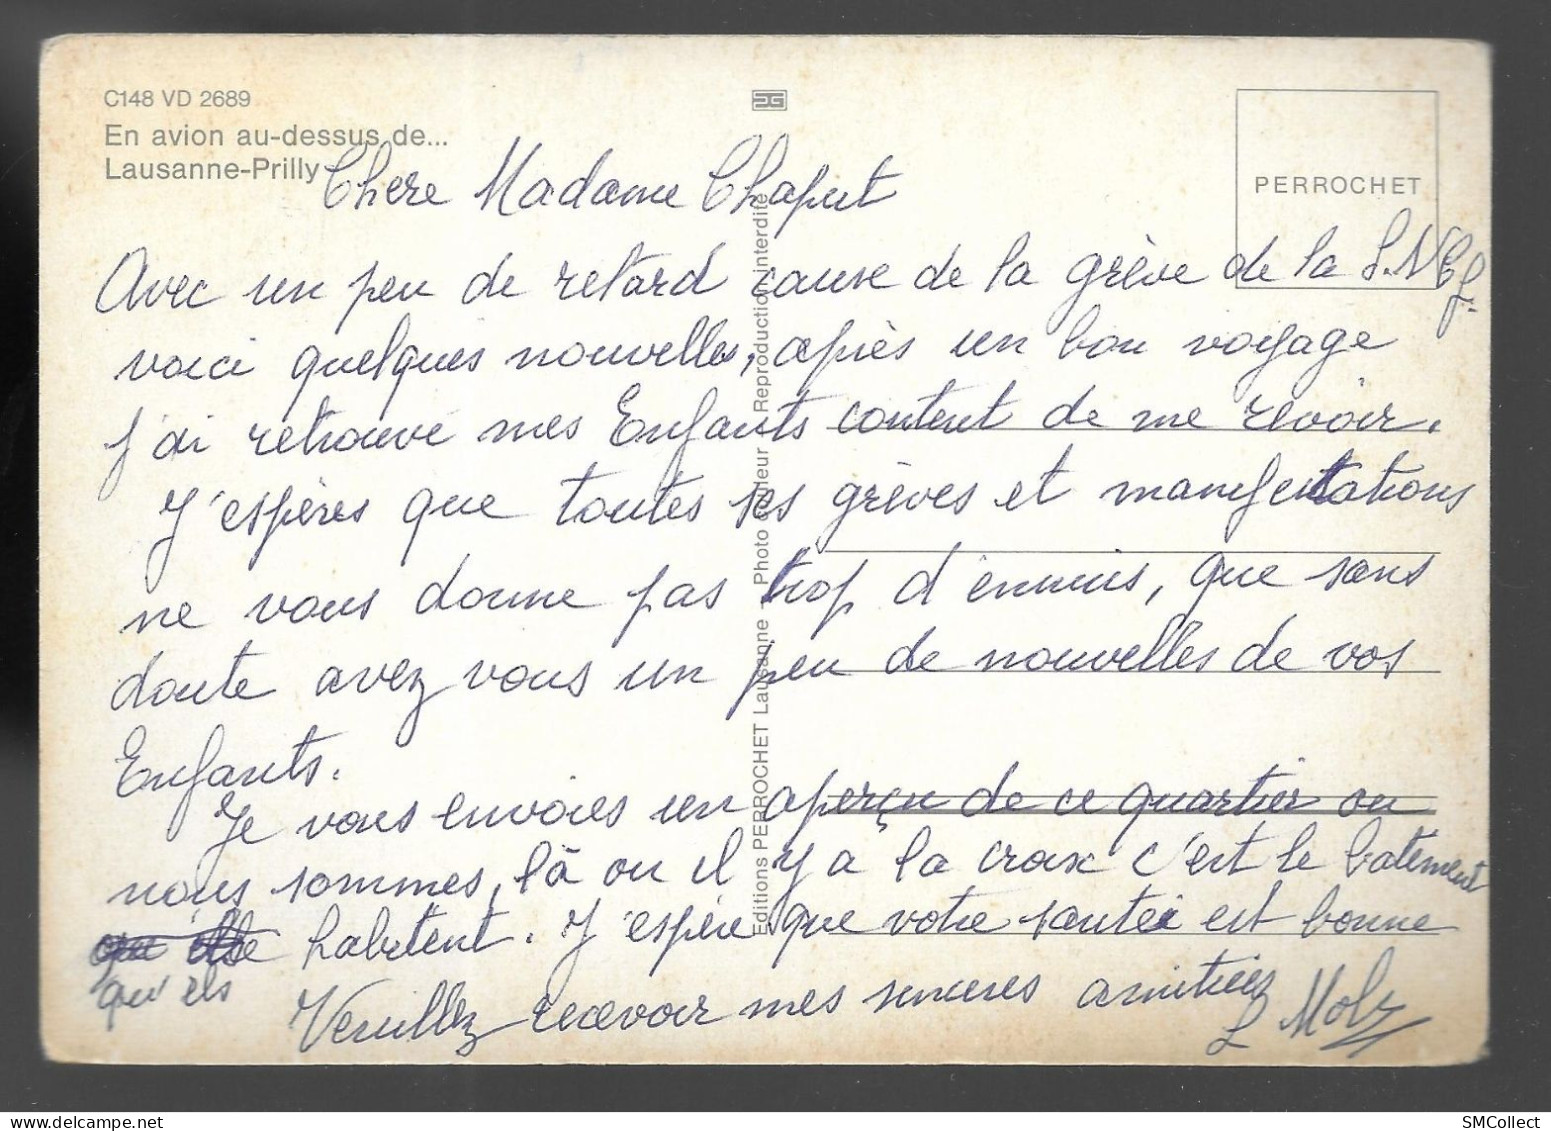 C148 VD 2689
En avion au-dessus de...
Lausanne-Prilly
PERROCHET
Editions PERROCHET Lausanne - Photo couleur Reproduction interdite
Chere Madame Chaput
Avec un peu de retard cause de la grève de la S.N.C.F.
voici quelques nouvelles, après un bon voyage
j'ai retrouvé mes Enfants content de me revoir.
J'espères que toutes ses grèves et manifestations
ne vous donne pas trop d'ennuis, que sans
doute avez vous un peu de nouvelles de vos
Enfants.
Je vous envoies un aperçu de ce quartier ou
nous sommes, là ou il y a la croix c'est le batement
qu'ils habitent. J'espère que votre santée est bonne
Veuillez recevoir mes sinceres amitiés
SMCollect